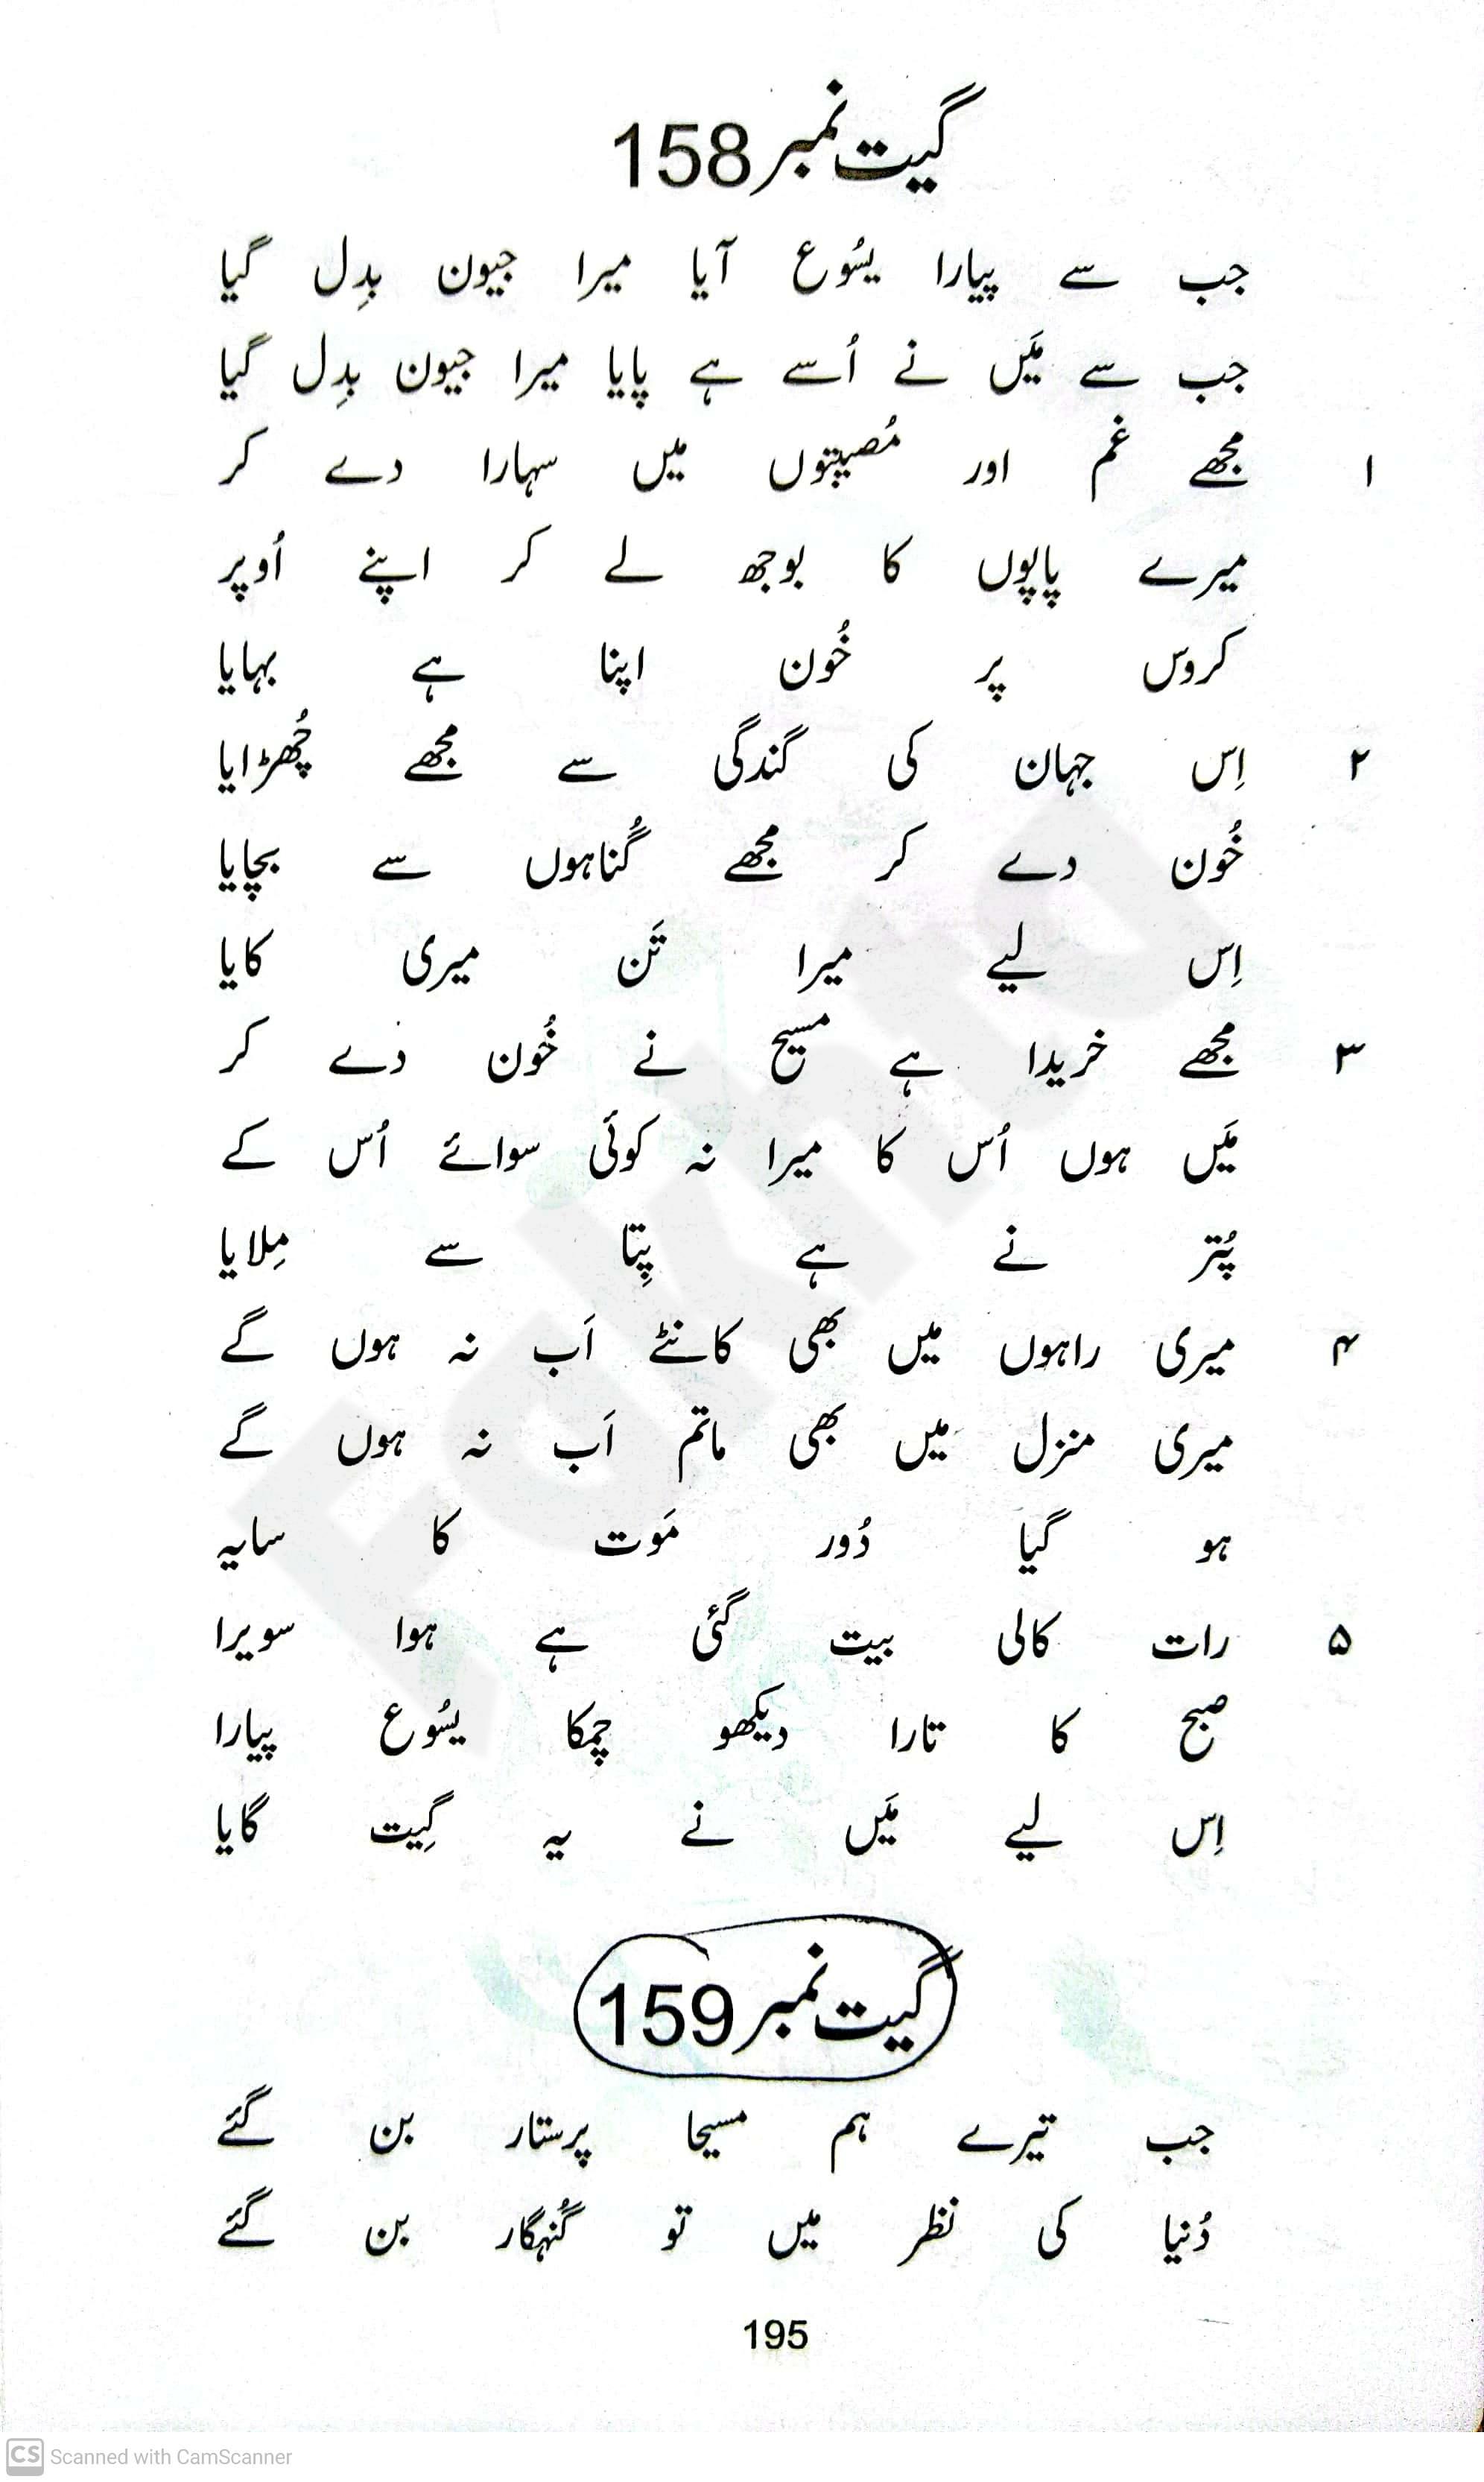 گیت نمبر 158
جب سے پیارا یسُوع آیا میرا جیون بدِل گیا
جب سے مَیں نے اُسے ہے پایا میرا جیون بدِل گیا
۱ مجھے غم اور مُصیبتوں میں سہارا دے کر
میرے پاپوں کا بوجھ لے کر اپنے اُوپر
کروس پر خُون اپنا ہے بہایا
۲ اِس جہان کی گندگی سے مجھے چُھڑایا
خُون دے کر مجھے گُناہوں سے بچایا
اِس لیے میرا تَن میری کایا
۳ مجھے خریدا ہے مسیح نے خُون دے کر
مَیں ہوں اُس کا میرا نہ کوئی سوائے اُس کے
پُتر نے ہے پِتا سے مِلایا
۴ میری راہوں میں بھی کانٹے اَب نہ ہوں گے
میری منزل میں بھی ماتم اَب نہ ہوں گے
ہو گیا دُور مَوت کا سایہ
۵ رات کالی بیت گئی ہے ہوا سویرا
صبح کا تارا دیکھو چمکا یسُوع پیارا
اِس لیے مَیں نے یہ گِیت گایا
گیت نمبر 159
جب تیرے ہم مسیحا پرستار بن گئے
دُنیا کی نظر میں تو گُنہگار بن گئے
195
Fakhta
CS Scanned with CamScanner